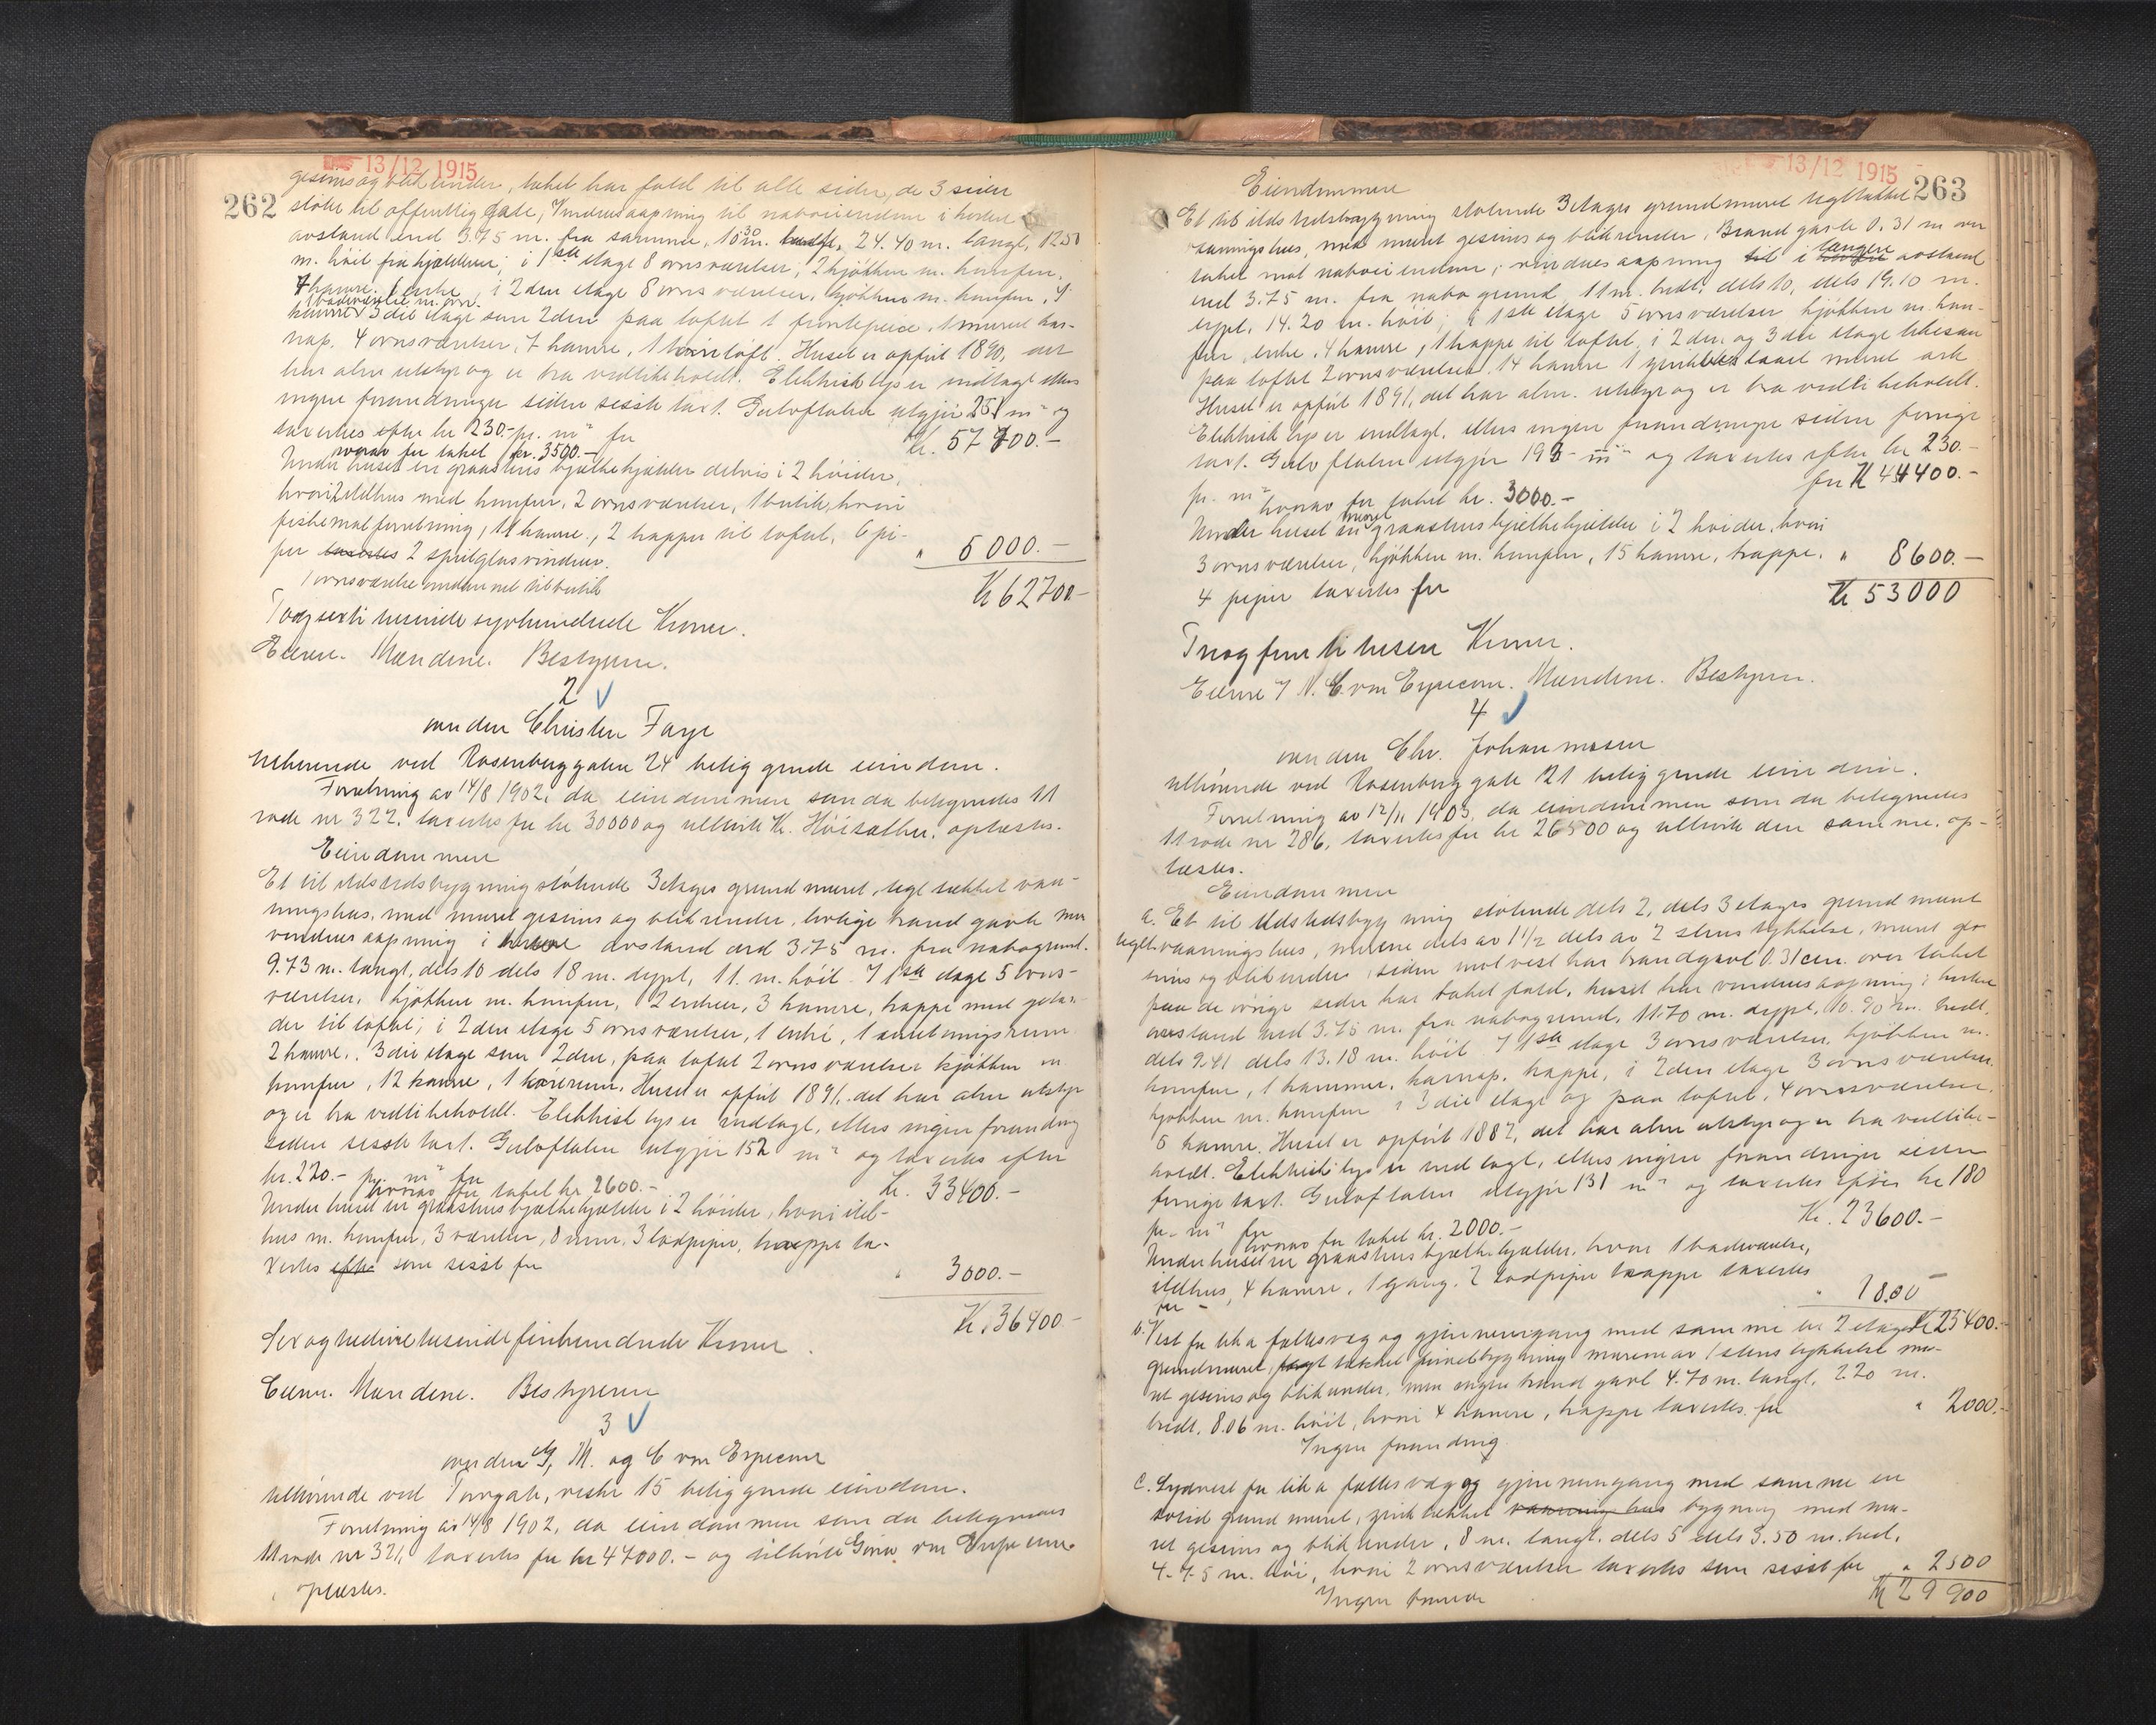 13/12 1915
262
gesims og blikrender, taket har fald til alle sider, de 3 sider
støter til offentlig gate, Vinduesaapning til naboeiendom i kortere
avstand end 3.75 m. fra samme, 10.30 m. bredt, 24.40 m. langt, 12.50
m. høit fra kjælderen; i 1ste etage 8 ovnsværelser, 2 kjøkken m. komfur,
7 kamre, 1 entre, i 2den etage 8 ovnsværelser, kjøkken m. komfur, 5
1 badeværelse m. ovn.
kamre, 3die etage som 2den paa loftet 1 frontespice, 1 muret kar-
nap. 4 ovnsværelser, 7 kamre, 1 tørreloft. Huset er opført 1890, det
har alm utstyr og er bra vedlikeholdt. Elektrisk lys er indlagt ellers
ingen forandringer siden sisste taxt. Gulvflaten utgjør 251 m² og
taxertes efter kr 230.- pr. m² for Kr. 57700.-
hvorav for taket kr. 3500.-
Under huset en graastens bjælkekjælder delvis i 2 høider,
hvori ildhus med komfur, 2 ovnsværelser, 1 butik, hvori
fiskematforretning, 11 kamre, 2 trapper til loftet, 6 pi-
per taxertes 2 speilglasvinduer. " 5000.-
1 ovnsværelse omdannet til butik
Kr 62700.-
Toogsexti tusinde syvhundrede Kroner.
Eieren. Mændene. Bestyreren.
2
over den Christen Faye
tilhørende ved Rosenberggaten 24 beliggende eiendom.
Forretning av 14/8 1902, da eiendommen som da betegnedes 11
rode nr 322. taxertes for kr 30000 og tilhørte K. Høisæther, oplæstes.
Eiendommen
Et til ildstedsbygning støtende 3 etages grundmuret, tegltækket vaa-
ningshus, med muret gesims og blikrender, lovlige brand gavle med
vinduesaapning i kortere avstand end 3.75 m. fra nabogrund.
9.73 m. langt, dels 10 dels 18 m. dypt, 11. m. høit. I 1ste etage 5 ovns-
værelser, kjøkken m. komfur, 2 entreer, 3 kamre, trappe med gelæn-
der til loftet; i 2den etage 5 ovnsværelser, 1 entré, 1 anretningsrum
2 kamre, 3die etage som 2den, paa loftet 2 ovnsværelser kjøkken m
komfur, 12 kamre, 1 tørrerum. Huset er opført 1891. det har alm utstyr
og er bra vedlikeholdt. Elektrisk lys er indlagt, ellers ingen forandring
siden sisste taxt. Gulvflaten utgjør 152 m² og taxertes efter
kr. 220.- pr m² for Kr. 33400.-
hvorav for taket kr 2600.-
Under huset en graastens bjælkekjælder i 2 høider, hvori ild-
hus m. komfur, 3 værelser, 8 rum. 3 lodpiper, trappe ta-
xertes efter som sisst for " 3000.-
Kr. 36400.-
Sexogtredive tusinde firehundrede Kroner.
Eieren. Mændene. Bestyreren
3
over den J, M. og C von Erpecom
tilhørende ved Torvgate, vestre 15 beliggende eiendom.
Forretning av 14/8 1902, da eiendommen som da betegnedes
11 rode nr 321, taxertes for kr 47000.- og tilhørte von Erpecom
oplæstes.
13/12 1915
263
Eiendommen
Et til ildstedsbygning støtende 3 etages grundmuret tegltækket
vaaningshus, med muret gesims og blikrender, Brand gavle 0.31 m over
taket mot naboeiendom; vinduesaapning til i længere avstand
end 3.75 m. fra nabogrund 11 m. bredt, dels 10, dels 19.10 m.
dypt. 14.20 m. høit; i 1ste etage 5 ovnsværelser kjøkken m. kom-
fur, entre, 4 kamre, 1 trappe til loftet, i 2den og 3die etage likesaa
paa loftet 2 ovnsværelser. 14 kamre 1 muret ark
Huset er opført 1891, det har alm. utstyr og er bra vedlikeholdt.
Elektrisk lys er indlagt. ellers ingen forandringer siden forrige
taxt. Gulvflaten utgjør 193 m² og taxertes efter kr 230.-
pr. m² for Kr 44400.-
hvorav for taket kr. 3000.-
Under huset en muret graastens bjælkekjælder i 2 høider, hvori
3 ovnsværelser, kjøkken m. komfur, 15 kamre, trappe. " 8600.-
4 piper taxertes for
Kr 53000
Treogfemti tusen Kroner.
Eierne J N. C. von Erpecom. Mændene. Bestyreren.
4
over den Chr. Johannesen
tilhørende ved Rosenberggate 21 beliggende eiendom.
Forretning av 12/11 1903, da eiendommen som da betegnedes
11 rode nr 286, taxertes for kr 26500 og tilhørte den samme, op-
læstes.
Eiendommen
a. Et til ildstedsbygning støtende dels 2, dels 3 etages grundmuret
teglt. vaaningshus, murene dels av 1 1/2 dels av 2 stens tykkelse, muret ge-
sims og blikrender, siden mot vest har brandgavl 0.31 cm. over taket
paa de øvrige sider har taket fald, huset har vinduesaapning i kortere
avstand end 3.75 m. fra nabogrund, 11.70 m. dypt, 10.90 m. bredt,
dels 9.41 dels 13.18 m. høit I 1ste etage 3 ovnsværelser, kjøkken m.
komfur, 1 kammer, karnap, trappe, i 2den etage 3 ovnsværelser
kjøkken m. komfur i 3die etage og paa loftet, 4 ovnsværelser,
5 kamre. Huset er opført 1887, det har alm utstyr og er bra vedlike-
holdt. Elektrisk lys er indlagt, ellers ingen forandringer siden
forrige taxt. Gulvflaten utgjør 131 m² og taxertes efter kr 180
pr m² for Kr. 23600.-
hvorav for taket kr. 2000.-
Under huset en graastens bjælkekjælder, hvori 1 badeværelse,
ildhus, 4 kamre, 1 gang, 2 lodpiper trappe taxertes
for " 1800
Kr 25400.-
b. Vest for litr a fællesvæg og gjennemgang med samme en 2 etages
grundmuret, tækket privetbygning murene av 1 stens tykkelse mu-
ret gesims og blikrender, men ingen brand gavl 4.70 m. langt, 2.20 m.
bredt, 8.06 m. høit, hvori 4 kamre, trappe taxertes for " 2000.-
Ingen forandring
c. Sydvest for litr a fællesvæg og gjennemgang med samme en
grundmuret, zinktækket vaanings hus bygning med mu-
ret gesims og blikrender, 8 m. langt. dels 5 dels 3.50 m. bred,
4.75 m. høi, hvori 2 ovnsværelser taxertes som sisst for " 2500
Kr 29900
Ingen